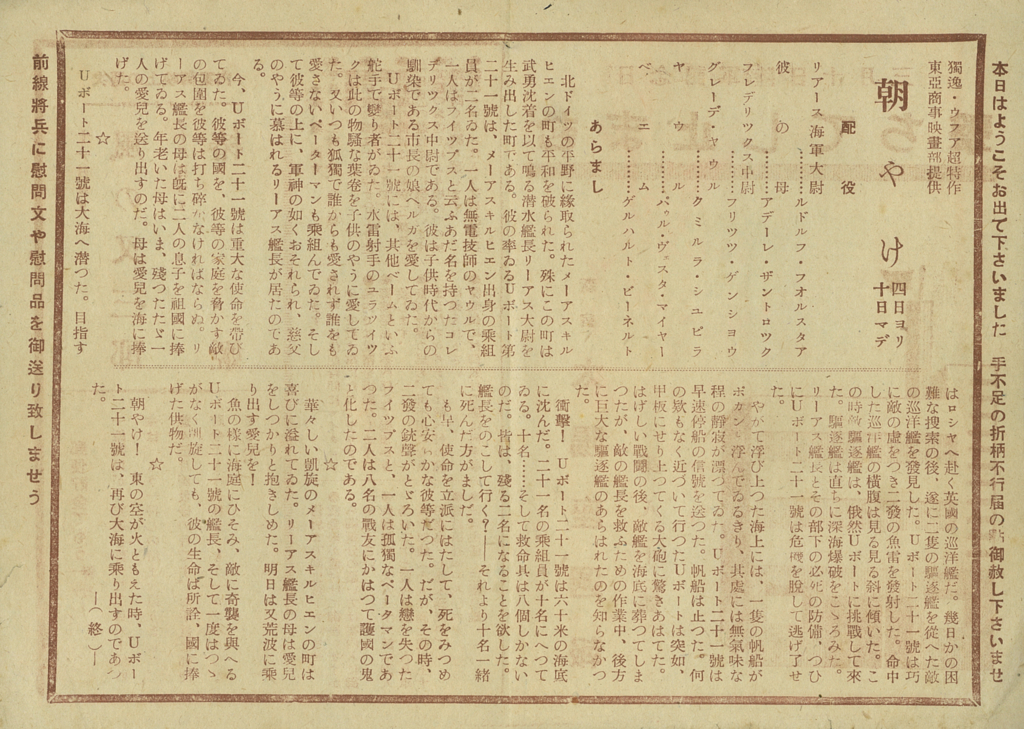 本日はようこそお出で下さいました　手不足の折柄不行届の點御赦し下さいませ
獨逸・ウファ超特作
東亞商事映畫部提供
朝やけ
四日ヨリ
十日マデ
配役
リアース海軍大尉…………ルドルフ・フオルスタア
彼の母…………アデーレ・ザントロツク
フレデリツクス中尉…………フリツツ・ゲンショウ
グレーデ・ヤウル…………クミルラ・シユピラ
ヤウル…………パウル・ヴェスタ・マイヤー
ベエム…………ゲルハルト・ビーネルト
あらまし
北ドイツの平野に緣取られたメーアスキル
ヒエンの町も平和を破られた。殊にこの町は
武勇沈着を以て鳴る潜水艦長リアース大尉を
生み出した町である。彼の率ゐるUボート第
二十一號は、メーアスキルヒエン出身の乘組
員が二名ゐた。一人は無電技師のヤウルで、
一人はフイツプスと云ふあだ名を持つたコレ
デリツクス中尉である。彼は子供時代からの
馴染である市長の娘ヘルガを愛してゐた。
Uボート二十一號には、其他ベームといふ
舵手で變り者がゐた。水雷射手のユラツイツ
クは此の物騷な葉卷を子供のやうに愛してゐ
た。又いつも孤獨で誰からも愛されず誰をも
愛さないペーターマンも乘組んでゐた。そし
て彼等の上に、軍神の如くおそれられ、慈父
のやうに慕はれるリアース艦長が居たのであ
る。
今、Uボート二十一號は重大な使命を帶び
てゐた。彼等の國を、彼等の家庭を脅かす敵
の包圍を彼等は打ち碎かなければならぬ。リ
ーアス艦長の母は旣に二人の息子を祖國に捧
げてゐる。年老いた母はいま、殘つたたゞ一
人の愛兒を送り出すのだ。母は愛兒を海に捧
げた。
☆
Uボート二十一號は大海へ潜つた。目指す
はロシヤへ赴く英國の巡洋艦だ。幾日かの困
難な搜索の後、遂に二隻の驅逐艦を從へた敵
の巡洋艦を發見した。Uボート二十一號は巧
に敵の虛をつき二發の魚雷を發射した。命中
した巡洋艦の橫腹は見る見る斜に傾いた。こ
の時敵驅逐艦は、俄然Uボートに挑戰して來
た。驅逐艦は直ちに深海爆破をこゝろみた。
リーアス艦長とその部下の必死の防備、つひ
にUボート二十一號は危機を脫して逃げ了せ
た。
やがて浮び上つた海上には、一隻の帆船が
ポカンと浮んでゐるきり、其處には無氣味な
程の靜寂が漂つてゐた。Uボート二十一號は
早速停船の信號を送つた。帆船は止つた。何
の疑もなく近づいて行つたUボートは突如、
甲板にせり上つてくる大砲に驚きあはてた。
はげしい戰鬪の後、敵艦を海底に葬つてしま
つたが、敵の艦長を救ふための作業中、後方
に巨大な驅逐艦のあらはれたのを知らなかつ
た。
衝擊！　Uボート二十一號は六十米の海底
に沈んだ。二十一名の乘組員が十名にへつて
ゐる。十名……そして救命具は八個しかない
のだ。皆は、殘る二名になることを欲した。
艦長をのこして行く？――それより十名一緖
に死んだ方がましだ。
も早、使命を立派にはたして、死をみつめ
ても心安らかな彼等だつた。だが、その時、
二發の銃聲がとゞろいた。一人は戀を失つた
フイツプスと、一人は孤獨なペータマンであ
つた。二人は八名の戰友にかはつて護國の鬼
と化したのである。
☆
華々しい凱旋のメーアスキルヒエンの町は
喜びに溢れてゐた。リーアス艦長の母は愛兒
をしつかりと抱きしめた。明日は又荒波に乘
り出す愛兒を！
魚の樣に海底にひそみ、敵に奇襲を與へる
Uボート二十一號の艦長、そして一度はつゝ
がなく凱旋しても、彼の生命は所詮、國に捧
げた供物だ。
☆
朝やけ！　東の空が火ともえた時、Uボー
ト二十一號は、再び大海に乘り出すのであつ
た。　　　　　　　　　――（終）――
前線將兵に慰問文や慰問品を御送り致しませう